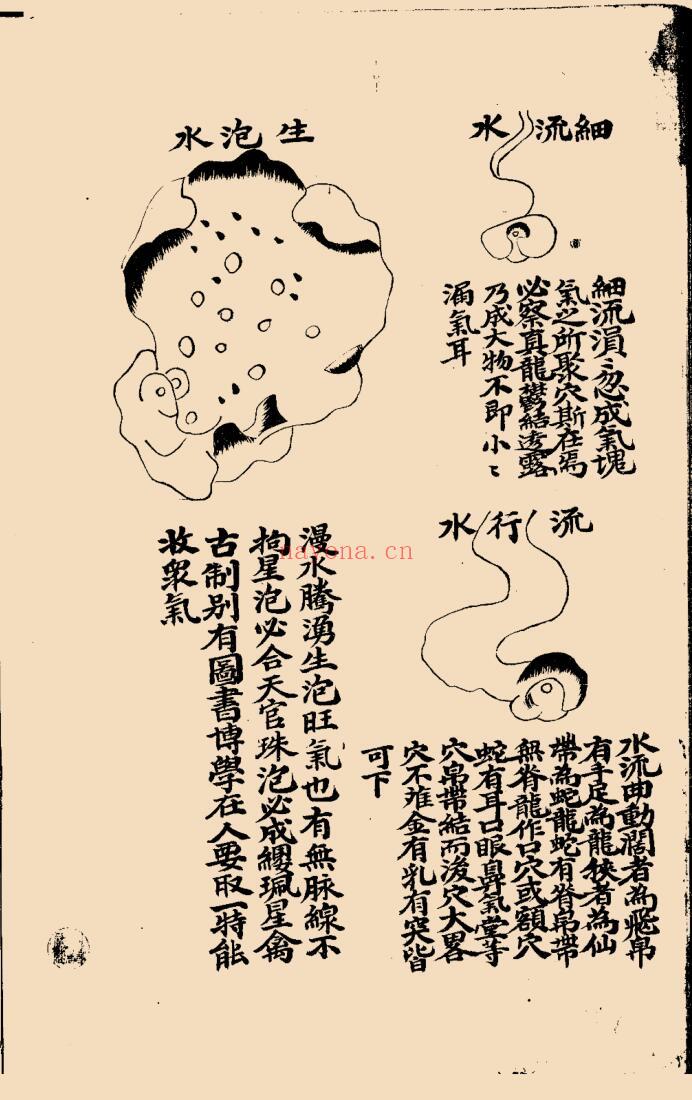 細流水
細流涓〻忽成氣塊
氣之所聚穴斯在焉
必察真龍鬱結透露
乃成大物不即小〻
漏氣耳
流行水
水流曲動濶者為飛帛
有手足為龍狹者為仙
帶為蛇龍蛇有脊帛帶
無脊龍作口穴或額穴
蛇有耳口眼鼻氣堂等
穴帛帶結而後穴大畧
穴不准金有乳有突皆
可下
生泡水
漫水騰湧生泡旺氣也有無脉線不
拘星泡必合天官珠泡必成纓珮星禽
古制別有圖書博學在人要取一特能
收衆氣
nayona.cn